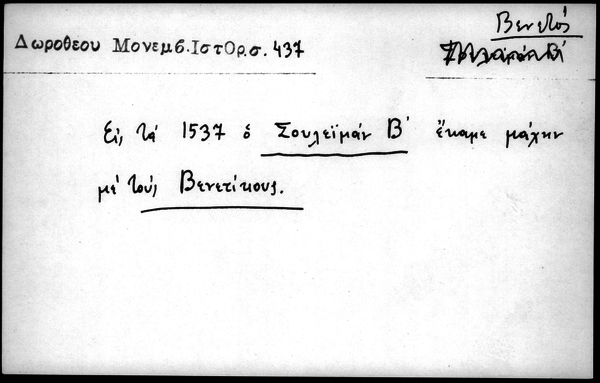 Βενετός
Δωροθεου Μονεμβ.ΙστΟρ.σ. 437
Εἰς τά 1537 ὁ Σουλεϊμάν Β' ἔκαμε μάχην
μέ τούς Βενετίκους.